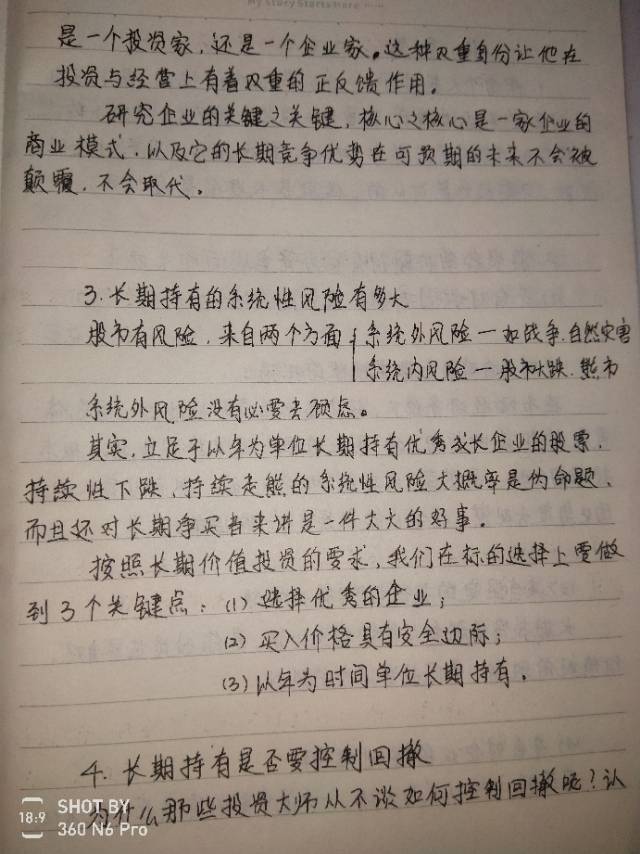 My Story Starts Here
是一个投资家，还是一个企业家。这种双重身份让他在
投资与经营上有着双重的正反馈作用。
研究企业的关键之关键，核心之核心是一家企业的
商业模式，以及它的长期竞争优势在可预期的未来不会被
颠覆，不会取代。
3.长期持有的系统性风险有多大
股市有风险，来自两个方面{系统外风险—如战争.自然灾害
系统内风险—股市大跌.熊市
系统外风险没有必要去顾虑。
其实，立足于以年为单位长期持有优秀成长企业的股票，
持续性下跌、持续走熊的系统性风险大概率是伪命题，
而且还对长期净买者来讲是一件大大的好事。
按照长期价值投资的要求，我们在标的选择上要做
到3个关键点：(1)选择优秀的企业；
(2)买入价格具有安全边际；
(3)以年为时间单位长期持有。
4.长期持有是否要控制回撤
为什么那些投资大师从不谈如何控制回撤呢？认
18:9
SHOT BY
360 N6 Pro